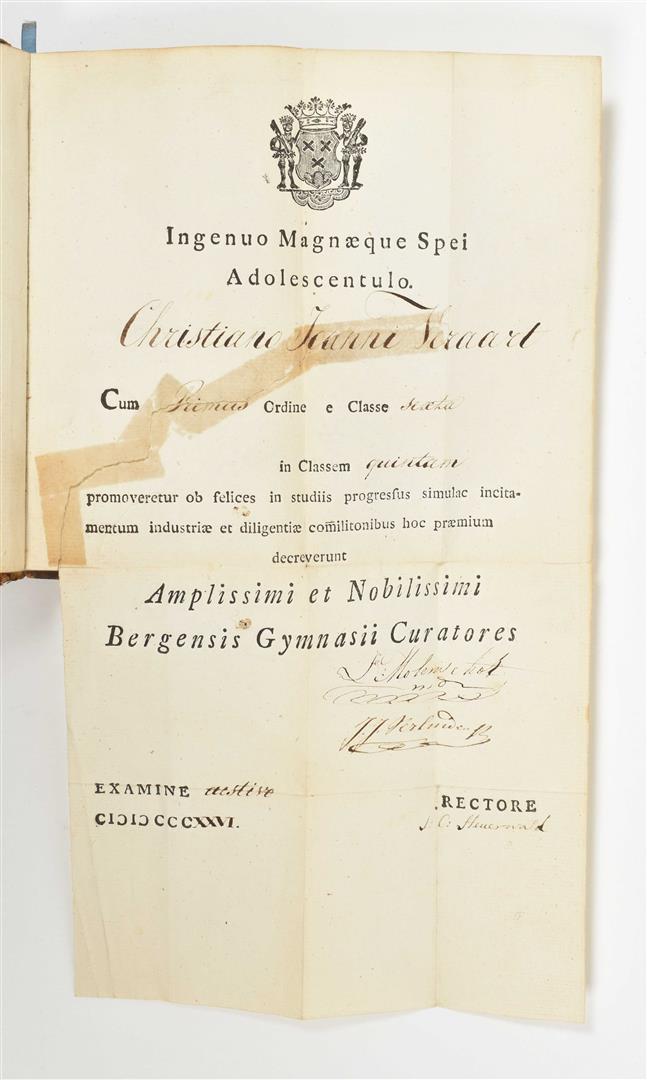 Ingenuo Magnæque Spei
Adolescentulo.
Christiano Joanni Veraart
Cum Primus Ordine e Classe sexta
in Classem quintam
promoveretur ob felices in studiis progreſsus simulac incita-
mentum industriæ et diligentiæ com̃ilitonibus hoc præmium
decreverunt
Amplissimi et Nobilissimi
Bergensis Gymnasii Curatores
Molenschot
J. J. Verlinden
EXAMINE aestivo
RECTORE
CIↃIↃCCCXXVI.
J: C: Steuerwald